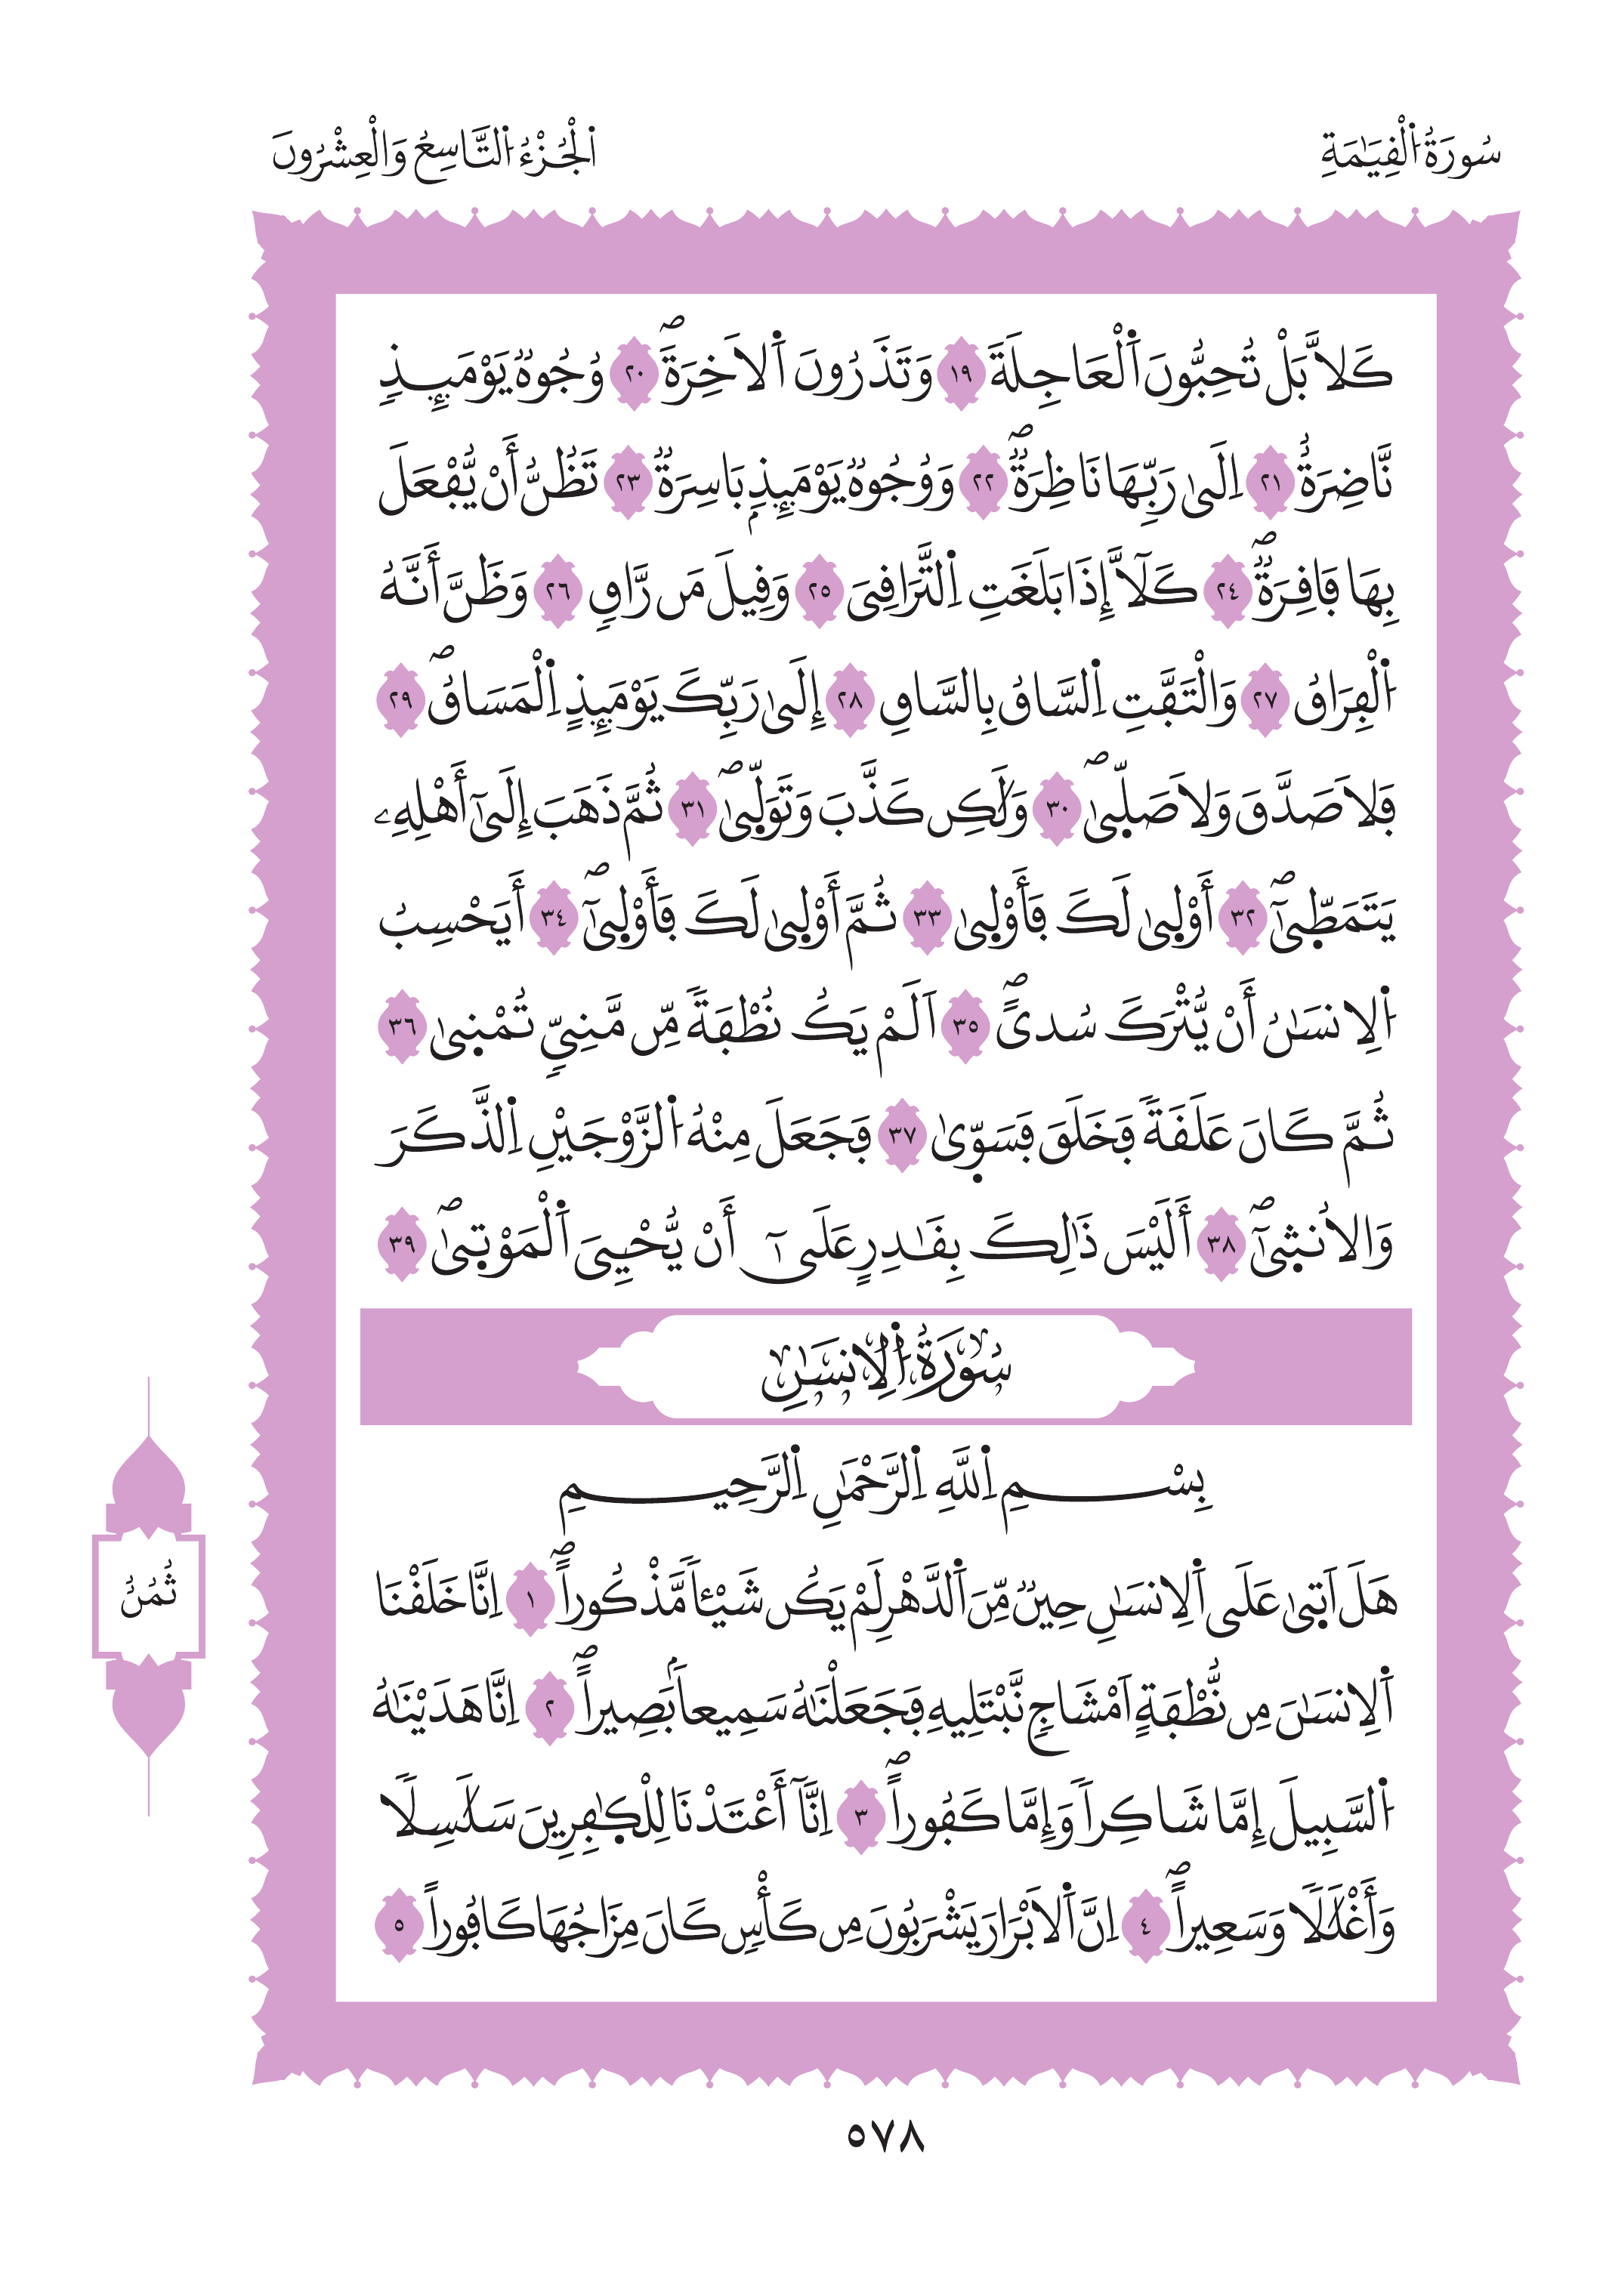 سُورَةُ اُ۬لْقِيَٰمَةِ
اَ۬لْجُزْءُ اُ۬لتَّاسِعُ وَالْعِشْرُونَ
كَلاَّ بَلْ تُحِبُّونَ اَ۬لْعَاجِلَةَ ١٩ وَتَذَرُونَ اَ۬لَاخِرَةَۖ ٢٠ وُجُوهٞ يَوْمَئِذٖ
نَّاضِرَةٌ ٢١ اِلَىٰ رَبِّهَا نَاظِرَةٞۖ ٢٢ وَوُجُوهٞ يَوْمَئِذِۢ بَاسِرَةٞ ٢٣ تَظُنُّ أَنْ يُّفْعَلَ
بِهَا فَاقِرَةٞۖ ٢٤ كَلَّآ إِذَا بَلَغَتِ اِ۬لتَّرَاقِىَ ٢٥ وَقِيلَ مَن رَّاقٖ ٢٦ وَظَنَّ أَنَّهُ
اُ۬لْفِرَاقُ ٢٧ وَالْتَفَّتِ اِ۬لسَّاقُ بِالسَّاقِ ٢٨ إِلَىٰ رَبِّكَ يَوْمَئِذٍ اِ۬لْمَسَاقُۖ ٢٩
فَلَا صَدَّقَ وَلَا صَلّ۪ىٰۖ ٣٠ وَلَٰكِن كَذَّبَ وَتَوَلّ۪ىٰۖ ٣١ ثُمَّ ذَهَبَ إِلَىٰٓ أَهْلِهِۦ
يَتَمَطّ۪ىٰٓۖ ٣٢ أَوْل۪ىٰ لَكَ فَأَوْل۪ىٰ ٣٣ ثُمَّ أَوْل۪ىٰ لَكَ فَأَوْل۪ىٰٓۖ ٣٤ أَيَحْسِبُ
اُ۬لِانسَٰنُ أَنْ يُّتْرَكَ سُدىًۖ ٣٥ اَلَمْ يَكُ نُطْفَةٗ مِّن مَّنِيّٖ تُمْن۪ىٰ ٣٦
ثُمَّ كَانَ عَلَقَةٗ فَخَلَقَ فَسَوّ۪ىٰ ٣٧ فَجَعَلَ مِنْهُ اُ۬لزَّوْجَيْنِ اِ۬لذَّكَرَ
وَالُانث۪ىٰٓۖ ٣٨ أَلَيْسَ ذَٰلِكَ بِقَٰدِرٍ عَلَىٰٓ أَنْ يُّحْـِۧيَ اَ۬لْمَوْت۪ىٰۖ ٣٩
سُورَةُ اُ۬لِانسَٰنِ
بِسْمِ اِ۬للَّهِ اِ۬لرَّحْمَٰنِ اِ۬لرَّحِيمِ
هَلَ اَت۪ىٰ عَلَى اَ۬لِانسَٰنِ حِينٞ مِّنَ اَ۬لدَّهْرِ لَمْ يَكُن شَيْـٔاٗ مَّذْكُوراًۖ ١ اِنَّا خَلَقْنَا
اَ۬لِانسَٰنَ مِن نُّطْفَةٍ اَمْشَاجٖ نَّبْتَلِيهِ فَجَعَلْنَٰهُ سَمِيعاَۢ بَصِيراًۖ ٢ اِنَّا هَدَيْنَٰهُ
اُ۬لسَّبِيلَ إِمَّا شَاكِراٗ وَإِمَّا كَفُوراًۖ ٣ اِنَّآ أَعْتَدْنَا لِلْكٰ۪فِرِينَ سَلَٰسِلٗا
وَأَغْلَٰلٗا وَسَعِيراًۖ ٤ اِنَّ اَ۬لَابْرَارَ يَشْرَبُونَ مِن كَأْسٖ كَانَ مِزَاجُهَا كَافُوراً ٥
ثُمُنٌ
٥٧٨